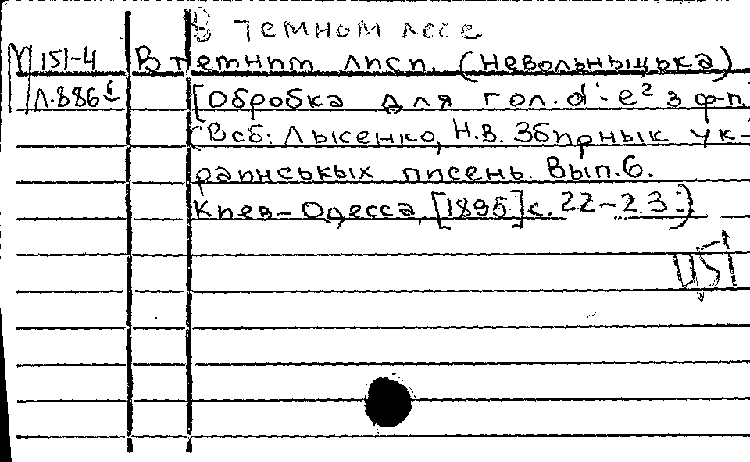 В темном лесе
М 151-4 В темним лиси. (Невольныцька)
Л.886 [Обробка для гол. d'-e² з ф-п.]
(В сб: Лысенко, Н.В. Збирнык ук-
раинськых писень. Вып.6.
Киев-Одесса, [1895] с. 22-23.)
Ц51